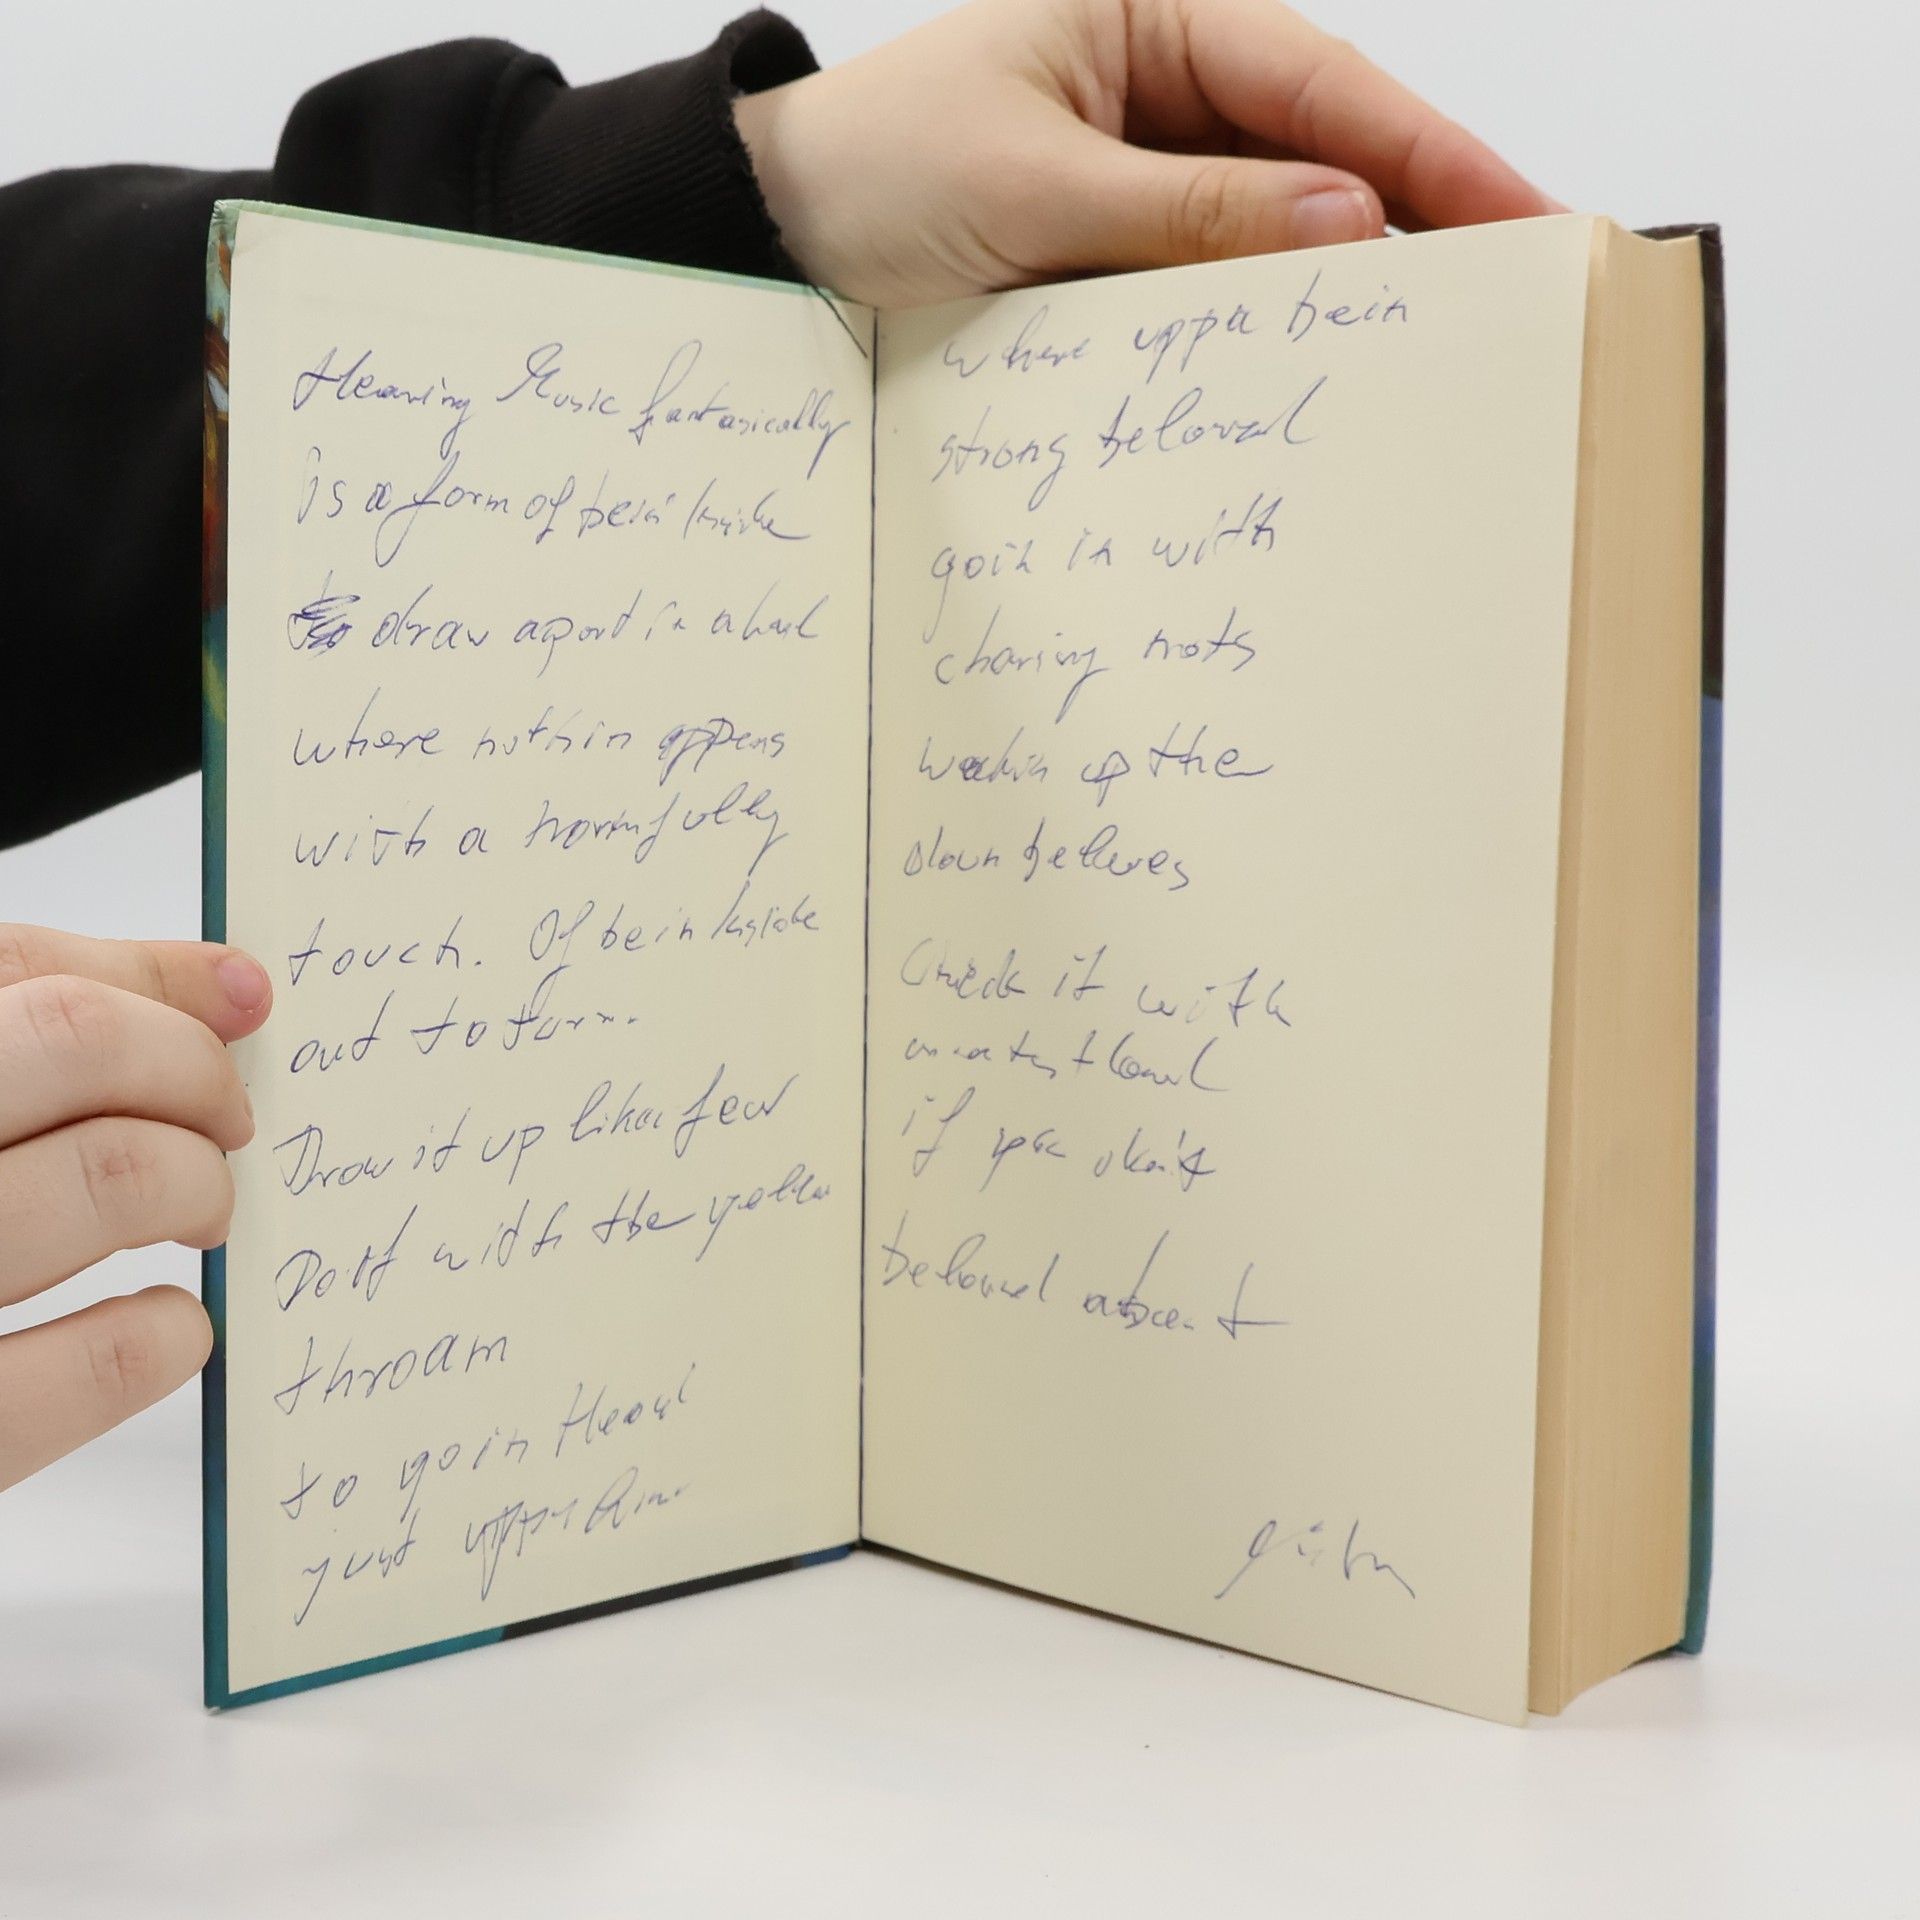 Hearing Music fantasically
is a form of bein inside
draw apart in a hand
where nothin appens
with a harmfully
touch. Of bein inside
out to turn.
Draw it up like a few
Do it with the yellow
throam
to go in Head
just upper
where uppa bein
strong beloved
goin in with
charing nots
up the
down beleves
Check it with
if you don't
beloved absent